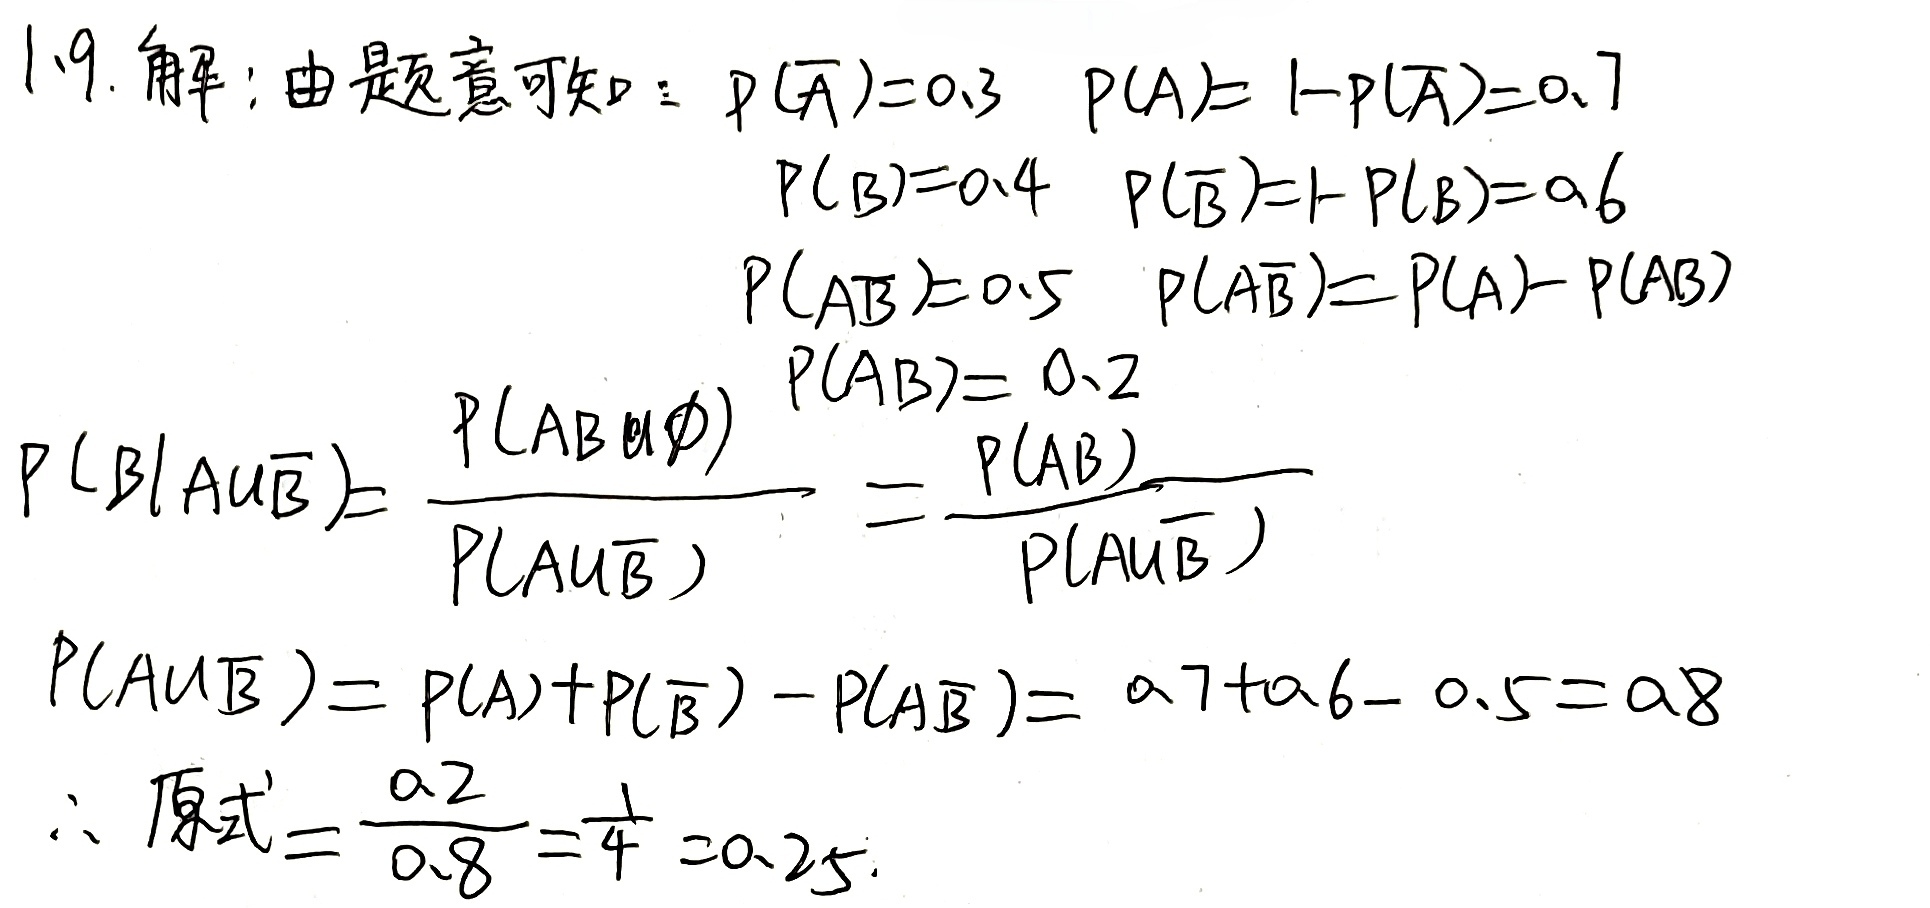 1.9. 解：由题意可知： P(A̅)=0.3 P(A)=1-P(A̅)=0.7
P(B)=0.4 P(B̅)=1-P(B)=0.6
P(AB̅)=0.5 P(AB̅)=P(A)-P(AB)
P(AB)=0.2
P(B|A∪B̅)= P(AB∪∅) / P(A∪B̅) = P(AB) / P(A∪B̅)
P(A∪B̅)=P(A)+P(B̅)-P(AB̅)=0.7+0.6-0.5=0.8
∴ 原式= 0.2/0.8 = 1/4 =0.25.